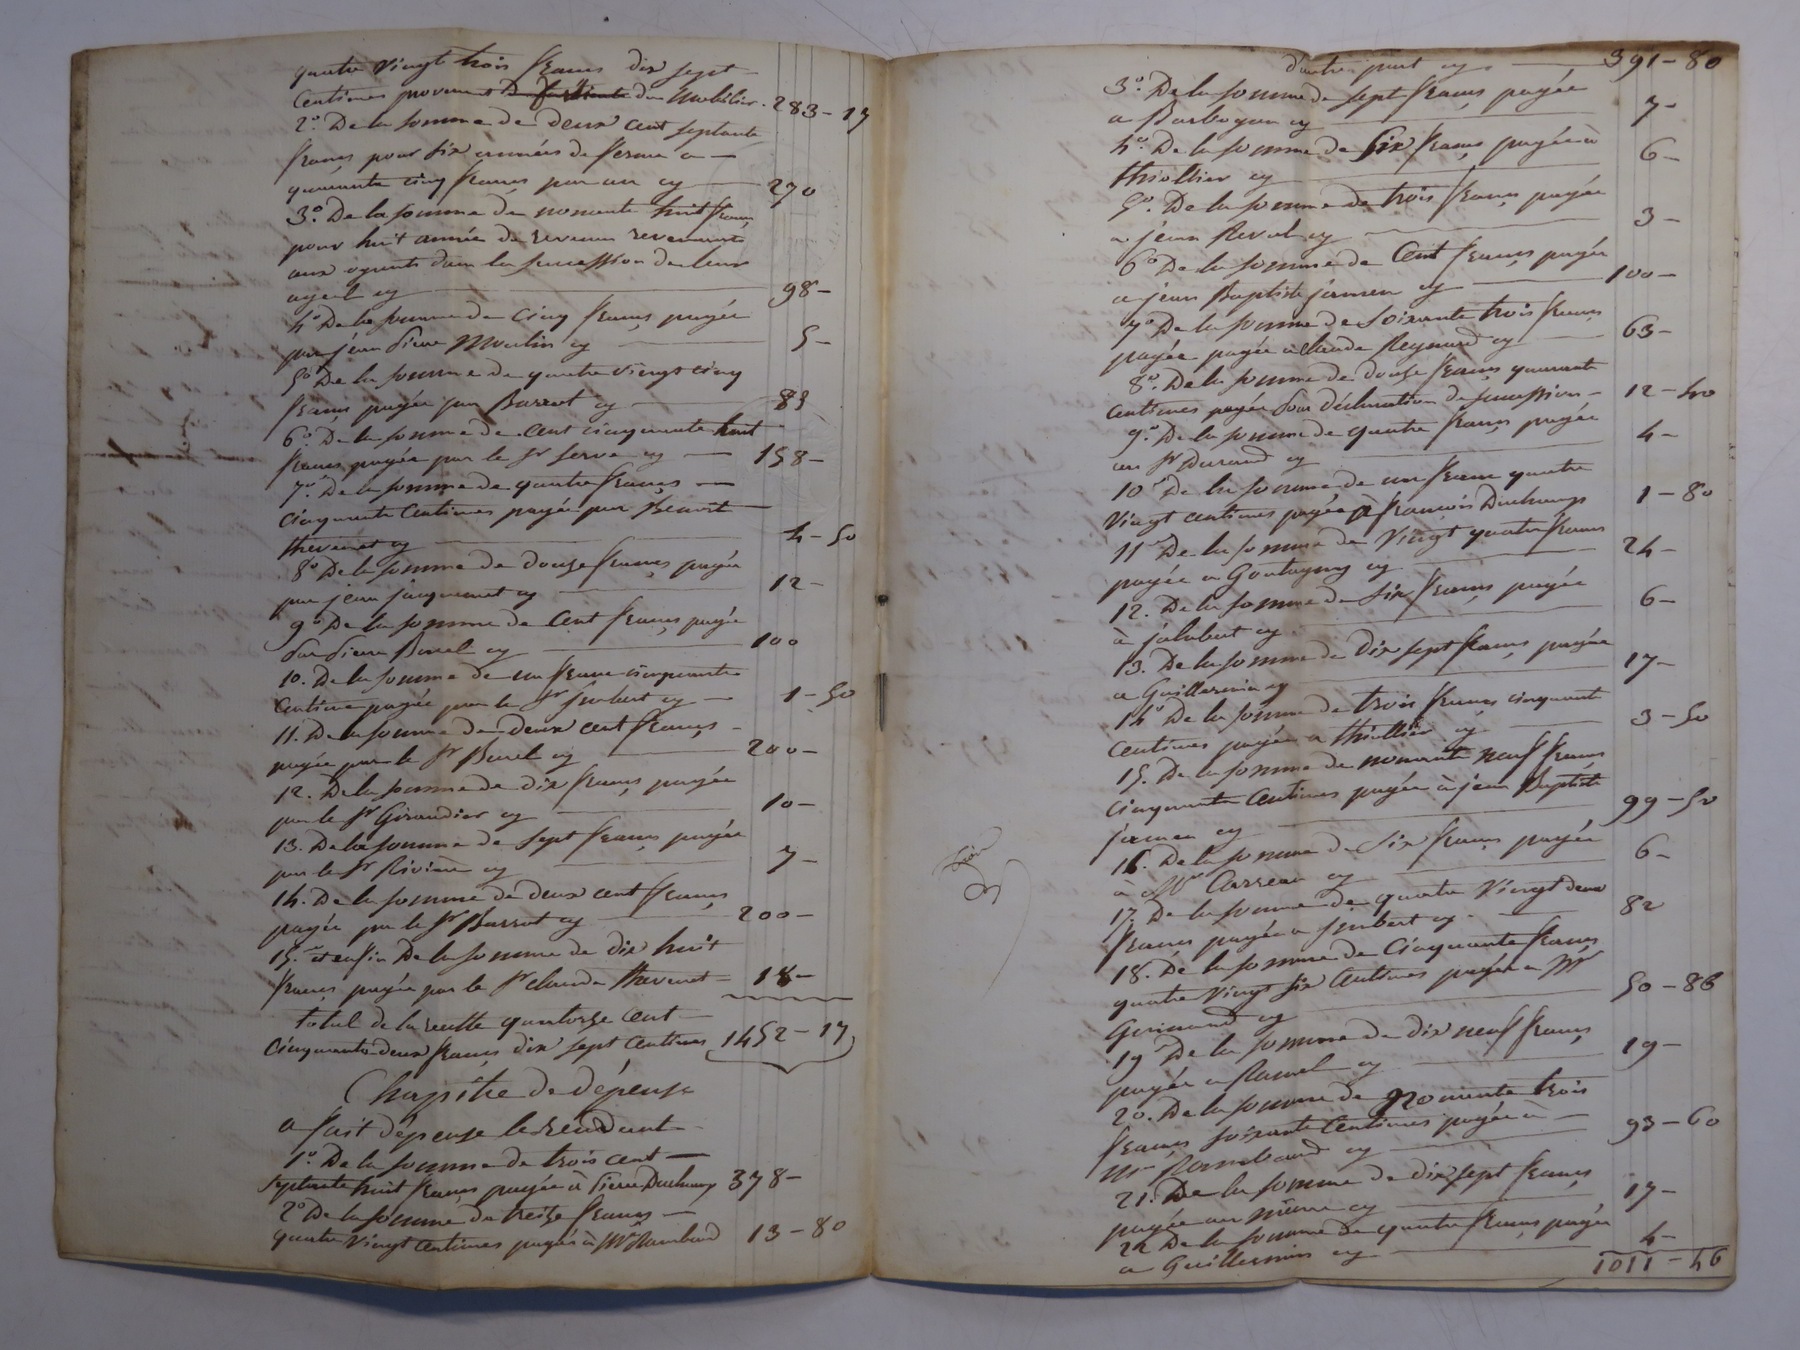 quatre Vingt trois francs dix sept
Centimes provenant du mobilier. 283-17
2.o De la somme de deux cent septante
francs pour six années de ferme a —
quarante cinq francs par an cy — 270
3.o De la somme de nonante huit francs
pour huit année de revenu revenant
aux oyants dans la succession de leur
ayeul cy — 98-
4.o De la somme de Cinq francs payée
par jean Pierre Moulin cy — 5-
5.o De la somme de quatre vingt cinq
francs payée par Barrot cy — 85
6.o De la somme de cent cinquante huit
francs payée par le Sr Serve cy — 158-
7.o De la somme de quatre francs —
cinquante Centimes payée par Benoit
thevenet cy — 4-50
8.o De la somme de douze francs payée
par jean jacquemet cy — 12-
9.o De la somme de Cent francs payée
Par Pierre Burel cy — 100
10. De la somme de un franc cinquante
Centime payée par le Sr jmbert cy — 1-50
11. De la somme de deux cent francs -
payée par le Sr Burel cy — 200-
12. De la somme de dix francs payée
par le Sr Giraudier cy — 10-
13. De la somme de Sept francs payée
par le Sr Rivière cy — 7-
14. De la somme de deux cent francs
payée par le Sr Barrot cy — 200-
15. et enfin De la somme de dix huit
francs payée par le Sr claude thevenet — 18-
total de la recette quatorze cent —
Cinquante deux francs dix sept Centimes 1452-17
Chapitre de dépense
a fait dépense le rendant
1.o De la somme de trois cent —
septante huit francs payée à Pierre Duchamp 378-
2.o De la somme de treize francs —
quatre Vingt centimes payée à Mr Rambaud 13-80
d'autre part cy — 391-80
3.o De la somme de sept francs payée
a Barboyon cy — 7-
4.o De la somme de Six francs payée à
thiollier cy — 6-
5.o De la somme de trois francs payée
a jean Revol cy — 3-
6.o De la somme de Cent francs payée
a jean Baptiste jamen cy — 100-
7.o De la somme de Soixante trois francs
payée payée a Claude Reynard cy — 63-
8.o De la somme de douze francs quarante
centimes payée Pour déclaration de succession — 12-40
9.o De la somme de quatre francs payée
au Sr Durand cy — 4-
10. De la somme de un franc quatre
Vingt centimes payée à françois Duchamp 1-80
11. De la somme de Vingt quatre francs
payée a Goutagny cy — 24-
12. De la somme de Six francs payée
à jalabert cy — 6-
13. De la somme de dix sept francs payée
a Guillermin cy — 17-
14.o De la somme de trois francs cinquante
Centimes payée a thiollier cy — 3-50
15. De la somme de nonante neuf francs
cinquante Centimes payée à jean Baptiste
jamen cy — 99-50
16. De la somme de Six francs payée
à Mr Carreau cy — 6-
17. De la somme de quatre Vingt deux
francs payée a jmbert cy. — 82
18. De la somme de Cinquante francs
quatre Vingt Six Centimes payée a Mr
cy — 50-86
19. De la somme de dix neuf francs
payée a cy — 19-
20. De la somme de Nonante trois
francs soixante Centimes payée à —
Mr Rambaud cy — 93-60
21. De la somme de dix sept francs
payée au même cy — 17-
22 De la somme de quatre francs payée
a Guillermin cy — 4-
1011-46